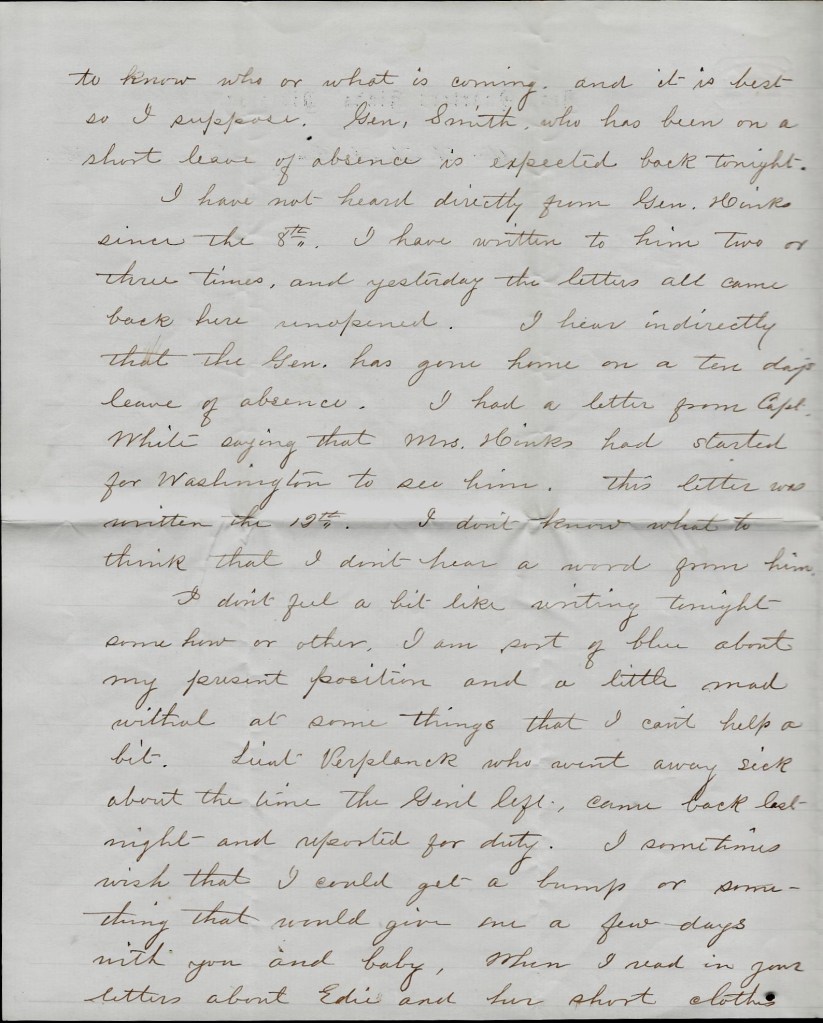 to know who or what is coming. and it is best
so I suppose. Gen, Smith, who has been on a
short leave of absence is expected back tonight.
I have not heard directly from Gen. Hinks
since the 8th. I have written to him two or
three times, and yesterday the letters all came
back here unopened. I hear indirectly
that the Gen. has gone home on a ten days
leave of absence. I had a letter from Capt.
White saying that Mrs. Hinks had started
for Washington to see him. This letter was
written the 19th. I don't know what to
think that I don't hear a word from him.
I don't feel a bit like writing tonight
some how or other, I am sort of blue about
my present position and a little mad
withal at some things that I can't help a
bit. Lieut Verplanck who went away sick
about the time the Gen'l left., came back last
night and reported for duty. I sometimes
wish that I could get a bump or some-
thing that would give me a few days
with you and baby, When I read in your
letters about Edie and her short clothes